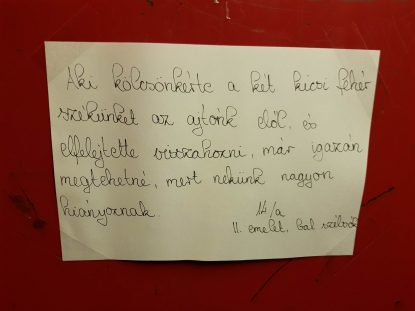 Aki kölcsönkérte a két kicsi fehér
székünket az ajtónk elől, és
elfelejtette visszahozni, már igazán
megtehetné, mert nekünk nagyon
hiányoznak.
14/a
II. emelet, bal szélső